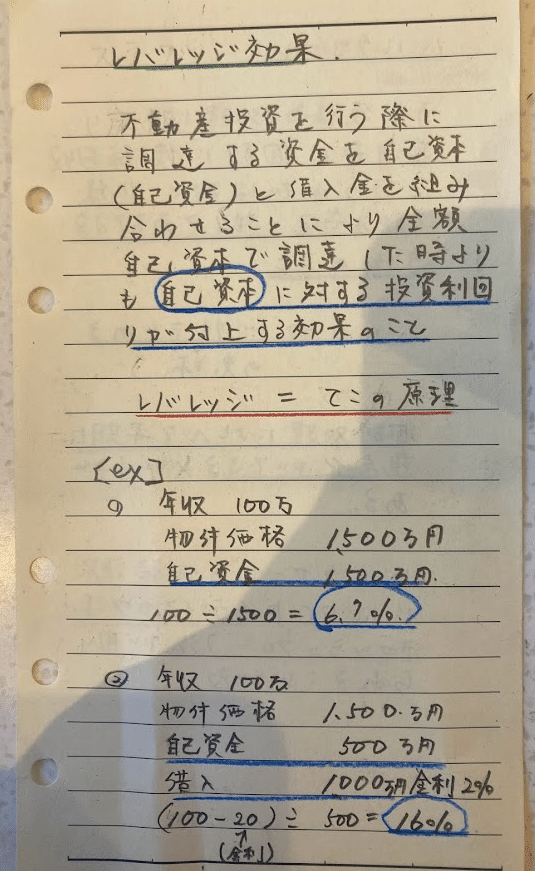 レバレッジ効果.
不動産投資を行う際に
調達する資金を自己資本
(自己資金)と借入金を組み
合わせることにより全額
自己資本で調達した時より
も自己資本に対する投資利回
りが向上する効果のこと
レバレッジ = てこの原理
[ex]
① 年収 100万
物件価格 1,500万円
自己資金 1,500万円.
100÷1500=6.7%.
② 年収 100万
物件価格 1,500.万円
自己資金 500万円
借入 1,000万円 金利2%
(100-20)÷500=16%
↑
(金利)